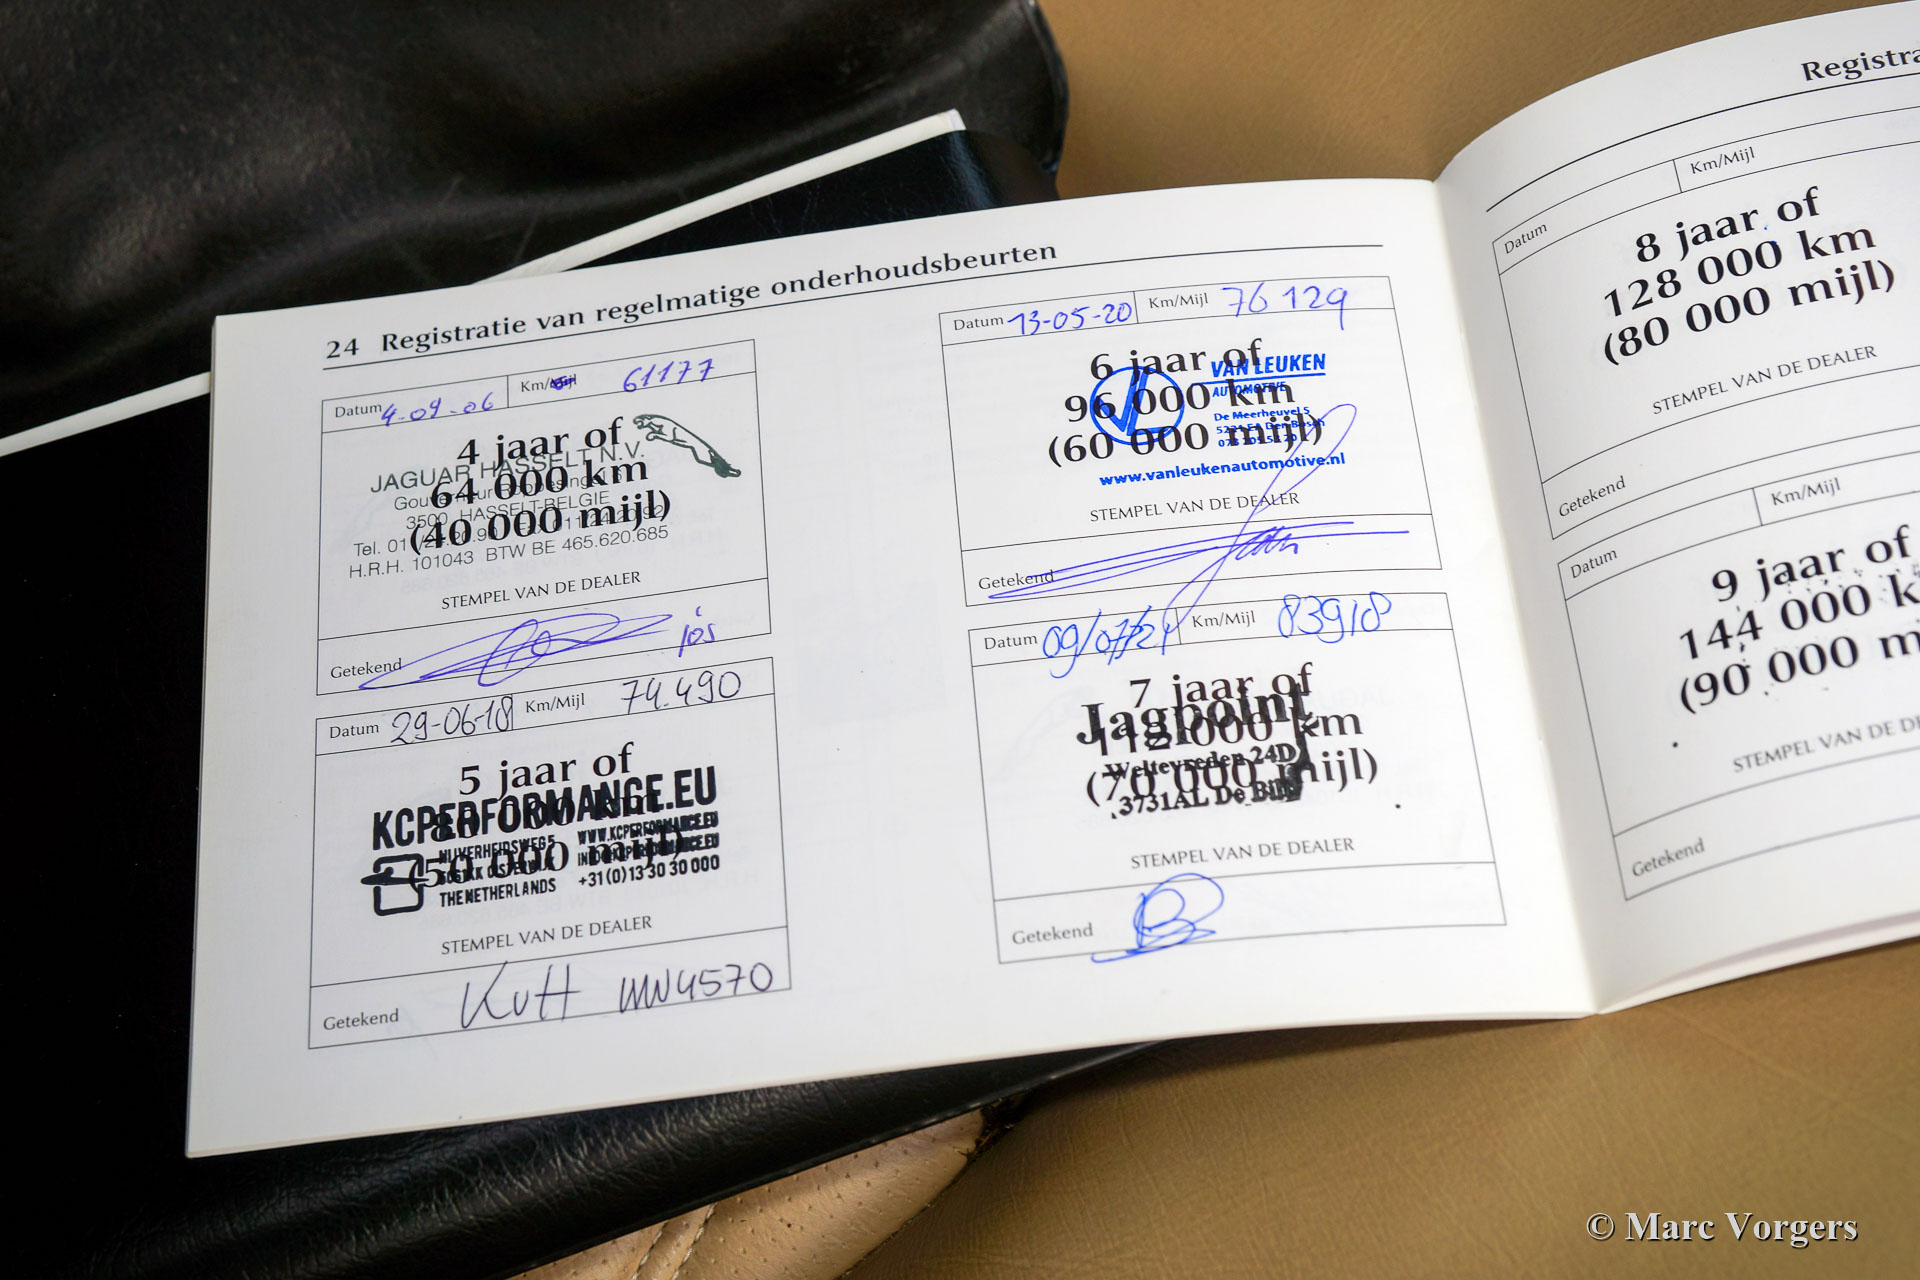 24 Registratie van regelmatige onderhoudsbeurten
Datum 4-09-06 Km/Mijl 61177
4 jaar of
64 000 km
(40 000 mijl)
JAGUAR HASSELT N.V.
3500 HASSELT-BELGIE
H.R.H. 101043 BTW BE 465.620.685
STEMPEL VAN DE DEALER
Getekend
Datum 29-06-18 Km/Mijl 74.490
5 jaar of
80 000 km
(50 000 mijl)
KCPERFORMANCE.EU
NIJVERHEIDSWEG 5
WWW.KCPERFORMANCE.EU
THE NETHERLANDS
+31 (0) 13 30 30 000
STEMPEL VAN DE DEALER
Getekend KvH
Datum 13-05-20 Km/Mijl 76 129
6 jaar of
96 000 km
(60 000 mijl)
VAN LEUKEN
AUTOMOTIVE
De Meerheuvel 5
Den Bosch
www.vanleukenautomotive.nl
STEMPEL VAN DE DEALER
Getekend
Datum 09/07/21 Km/Mijl 83918
7 jaar of
112 000 km
(70 000 mijl)
Jagpoint
Weltevreden 24D
3731AL De Bilt
STEMPEL VAN DE DEALER
Getekend
Registra
Datum Km/Mijl
8 jaar of
128 000 km
(80 000 mijl)
STEMPEL VAN DE DEALER
Getekend
Datum Km/Mijl
9 jaar of
144 000 k
(90 000 m
STEMPEL VAN DE D
Getekend
© Marc Vorgers